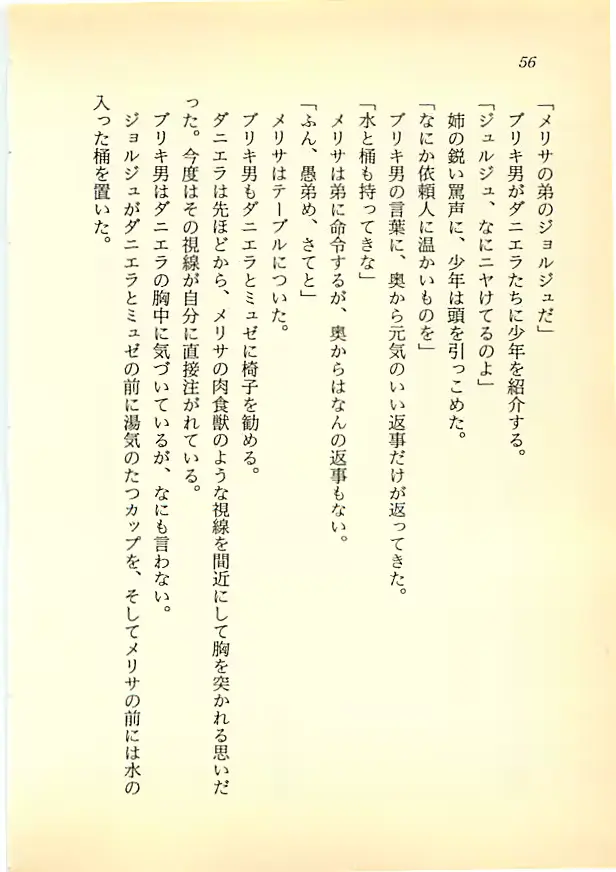 56
「メリサの弟のジョルジュだ」
ブリキ男がダニエラたちに少年を紹介する。
「ジュルジュ、なにニヤけてるのよ」
姉の鋭い罵声に、少年は頭を引っこめた。
「なにか依頼人に温かいものを」
ブリキ男の言葉に、奥から元気のいい返事だけが返ってきた。
「水と桶も持ってきな」
メリサは弟に命令するが、奥からはなんの返事もない。
「ふん、愚弟め、さてと」
メリサはテーブルについた。
ブリキ男もダニエラとミュゼに椅子を勧める。
ダニエラは先ほどから、メリサの肉食獣のような視線を間近にして胸を突かれる思いだ
った。今度はその視線が自分に直接注がれている。
ブリキ男はダニエラの胸中に気づいているが、なにも言わない。
ジョルジュがダニエラとミュゼの前に湯気のたつカップを、そしてメリサの前には水の
入った桶を置いた。